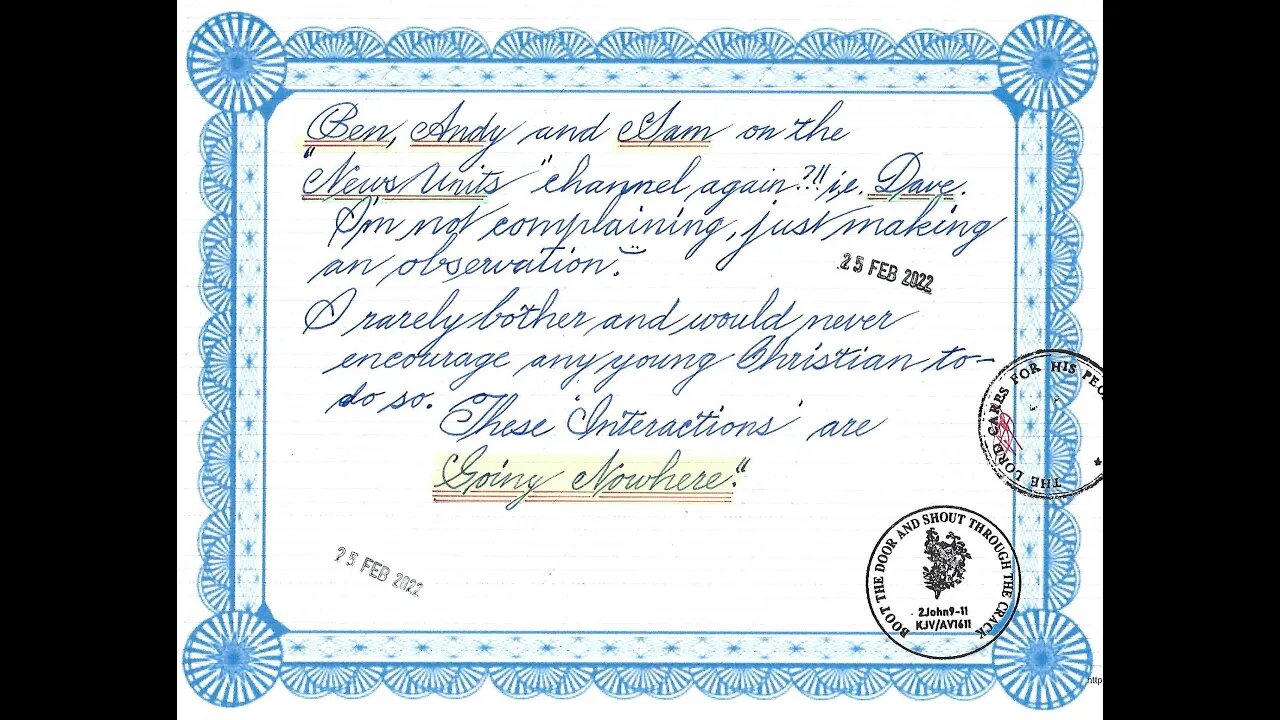 Ben, Andy and Sam on the
"News Units" channel again?!! i.e. Dave.
I'm not complaining, just making
an observation.
25 FEB 2022
I rarely bother and would never
encourage any young Christian to-
do so.
These 'Interactions' are
Going Nowhere."
THE LORD CARES FOR HIS PEO
BOOT THE DOOR AND SHOUT THROUGH THE CRACK
2John9-11
KJV/AV1611
25 FEB 2022
http